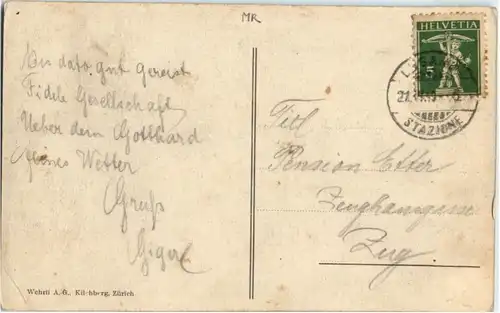 MR
Bis dato gut gereist
Fidele Gesellschaft
Ueber dem Gotthard
feines Wetter
Gruß
Giger
Wehrli A.-G., Kilchberg, Zürich
HELVETIA
STAZIONE
Titl
Pension Etter
Zeughausgasse
Zug.